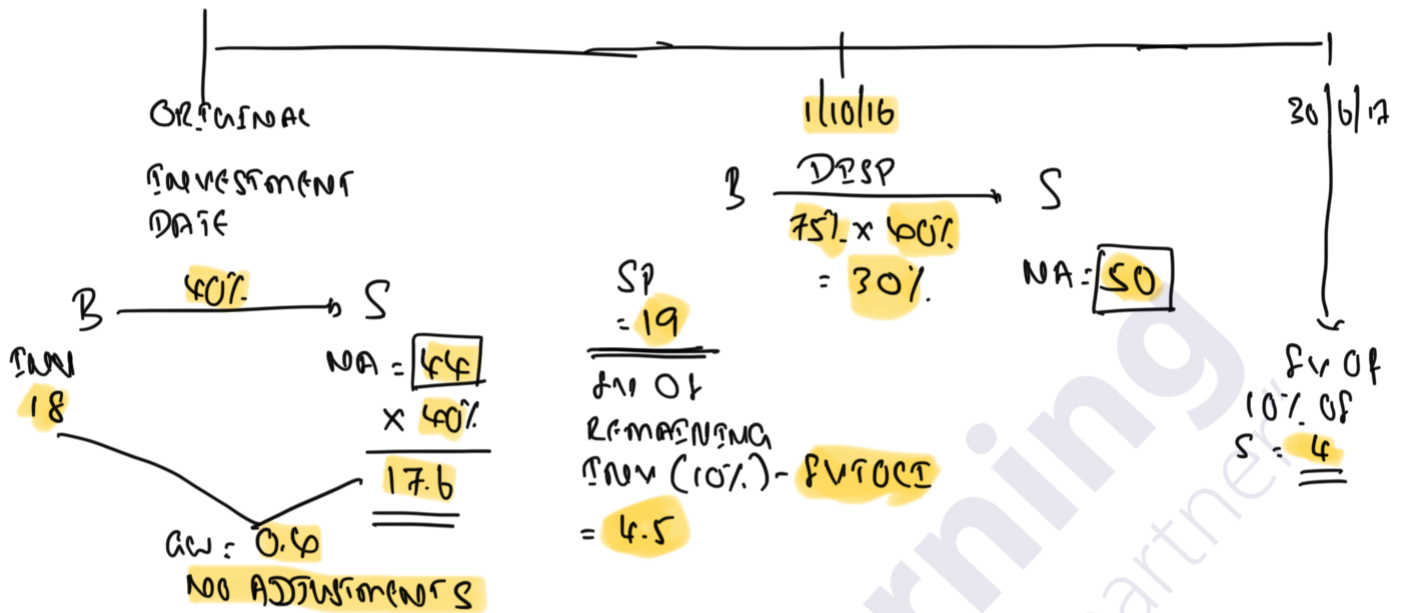 ORIGINAL
INVESTMENT
DATE
B 40% S
INV
18
NA = 44
x 40%
17.6
GW = 0.4
NO ADJUSTMENTS
1/10/16
B DISP S
75% x 40%
= 30%
NA = 50
SP
= 19
FV OF
REMAINING
INV (10%) - FVTOCI
= 4.5
30/6/17
FV OF
10% OF
S = 4
rning
artner"